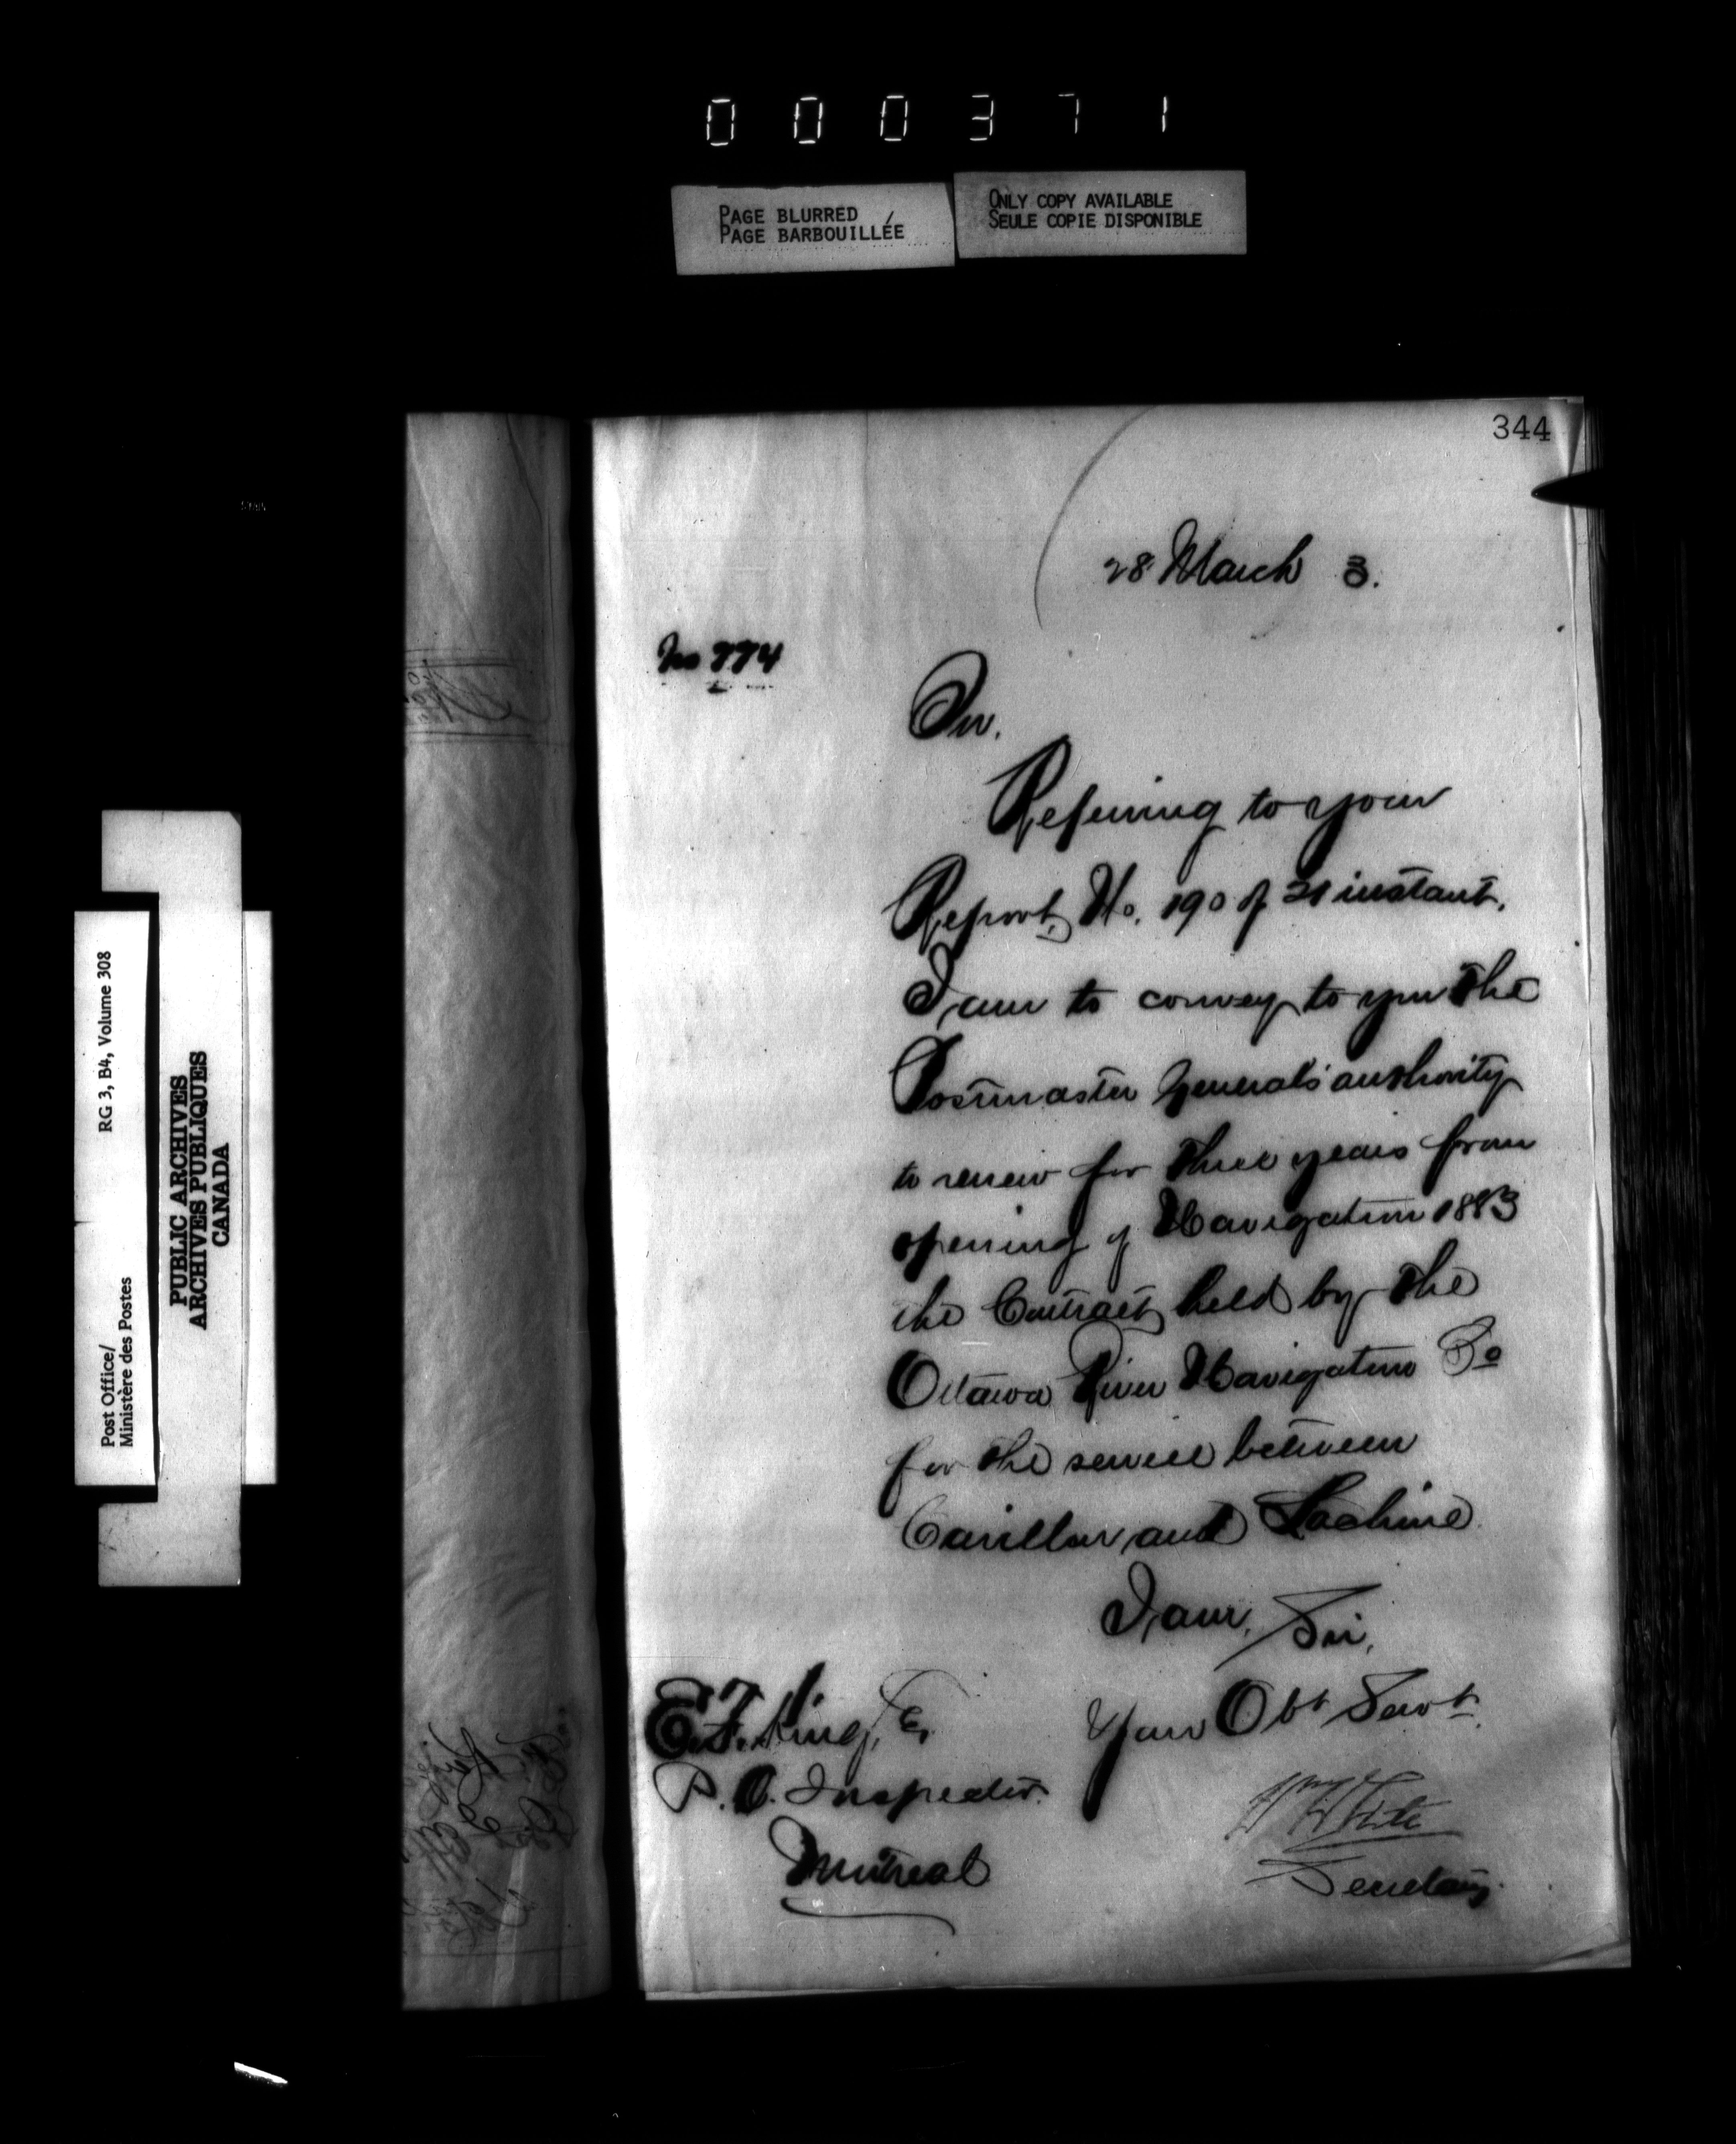 000371
PAGE BLURRED
PAGE BARBOUILLÉE
ONLY COPY AVAILABLE
SEULE COPIE DISPONIBLE
344
28 March 3.
No 774
Sir,
Referring to your
Report No. 190 of 21 instant,
I am to convey to you the
Postmaster General's authority
to renew for three years from
opening of Navigation 1883
the Contract held by the
Ottawa River Navigation Co
for the service between
Carillon and Lachine
I am, Sir,
Your Obt Servt
E. F. King, E
P. O. Inspector
Montreal
Wm White
Secretary.
Post Office/
Ministère des Postes
RG 3, B4, Volume 308
PUBLIC ARCHIVES
ARCHIVES PUBLIQUES
CANADA